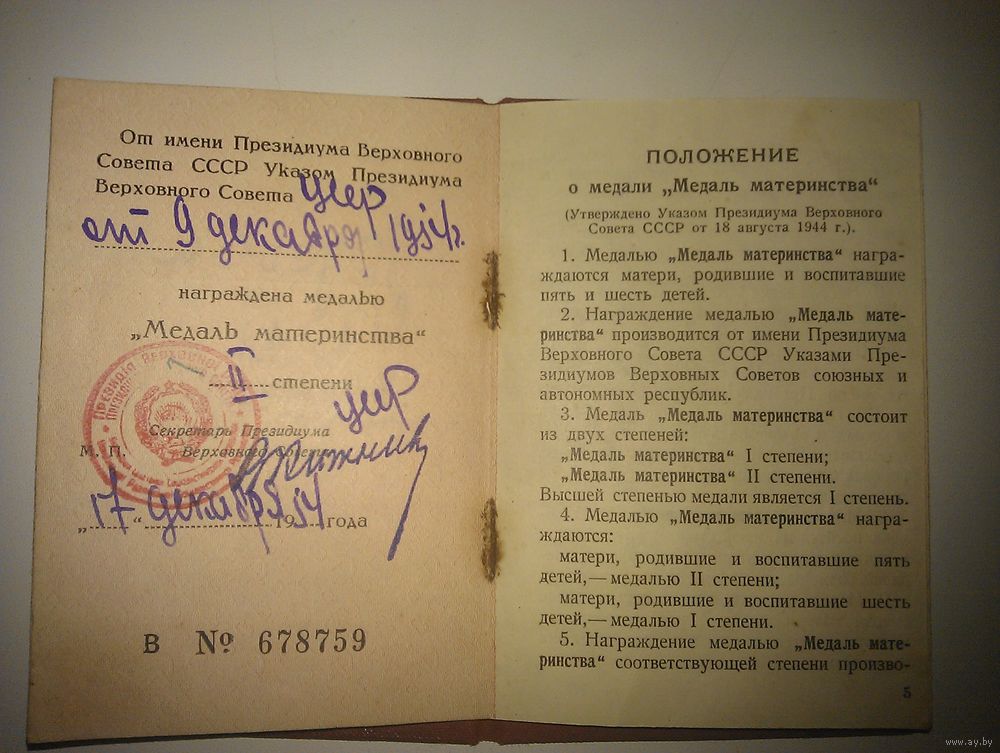 От имени Президиума Верховного
Совета СССР Указом Президиума
Верховного Совета УССР
от 9 декабря 1954 г.
награждена медалью
„Медаль материнства“
II степени
Секретарь Президиума
Верховного Совета УССР
М. П.
„17“ декабря 1954 года
В № 678759
ПОЛОЖЕНИЕ
о медали „Медаль материнства“
(Утверждено Указом Президиума Верховного
Совета СССР от 18 августа 1944 г.).
1. Медалью „Медаль материнства“ награ-
ждаются матери, родившие и воспитавшие
пять и шесть детей.
2. Награждение медалью „Медаль мате-
ринства“ производится от имени Президиума
Верховного Совета СССР Указами Пре-
зидиумов Верховных Советов союзных и
автономных республик.
3. Медаль „Медаль материнства“ состоит
из двух степеней:
„Медаль материнства“ I степени;
„Медаль материнства“ II степени.
Высшей степенью медали является I степень.
4. Медалью „Медаль материнства“ награ-
ждаются:
матери, родившие и воспитавшие пять
детей,— медалью II степени;
матери, родившие и воспитавшие шесть
детей,— медалью I степени.
5. Награждение медалью „Медаль мате-
ринства“ соответствующей степени произво-
5
www.ay.by